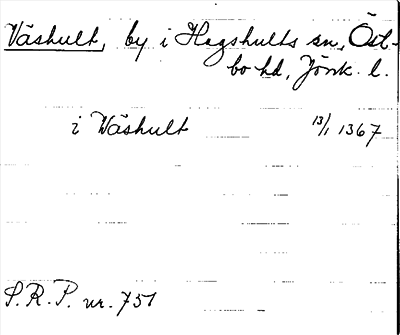 Väshult, by i Hagshults sn, Öst-
bo hd, Jönk. l.
i Wäshult 13/1 1367
S.R.P. nr. 751